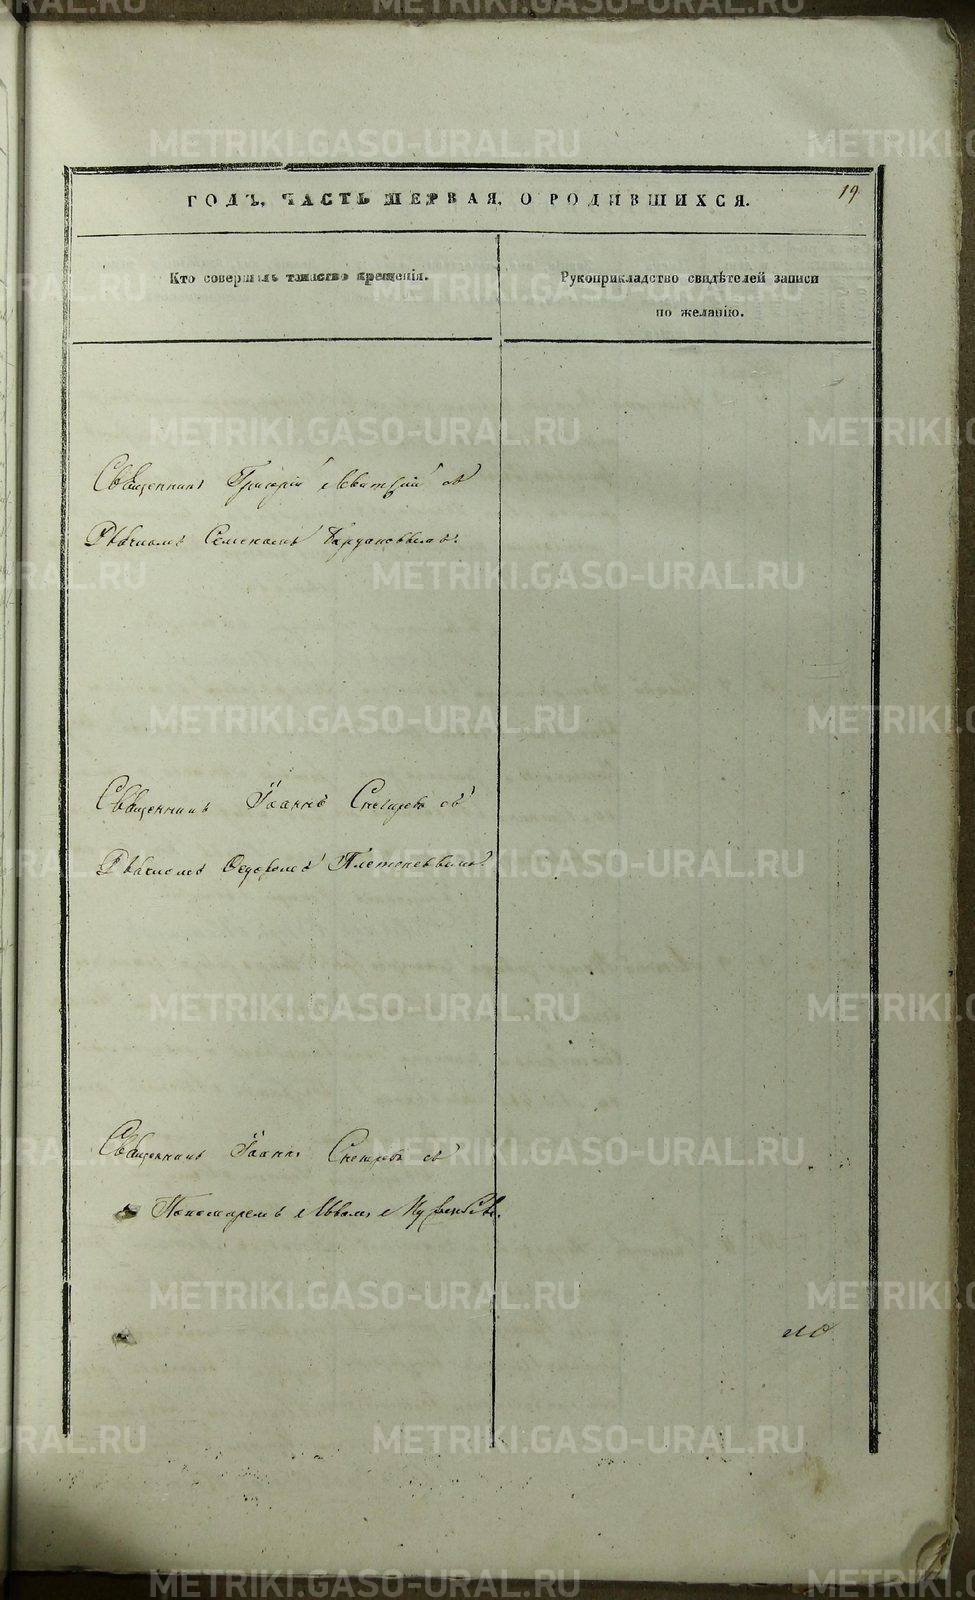 METRIKI.GASO-URAL.RU
19
ГОДЪ, ЧАСТЬ ПЕРВАЯ, О РОДИВШИХСЯ.
Кто совершилъ таинство крещенія.
Рукоприкладство свидѣтелей записи
по желанію.
Священникъ Григорій Левитскій съ
Дьячкомъ Семеномъ
Священникъ Іоаннъ Снегиревъ съ
Дьячкомъ Ѳедоромъ
Священникъ Іоаннъ Снегиревъ съ
Пономаремъ Львомъ